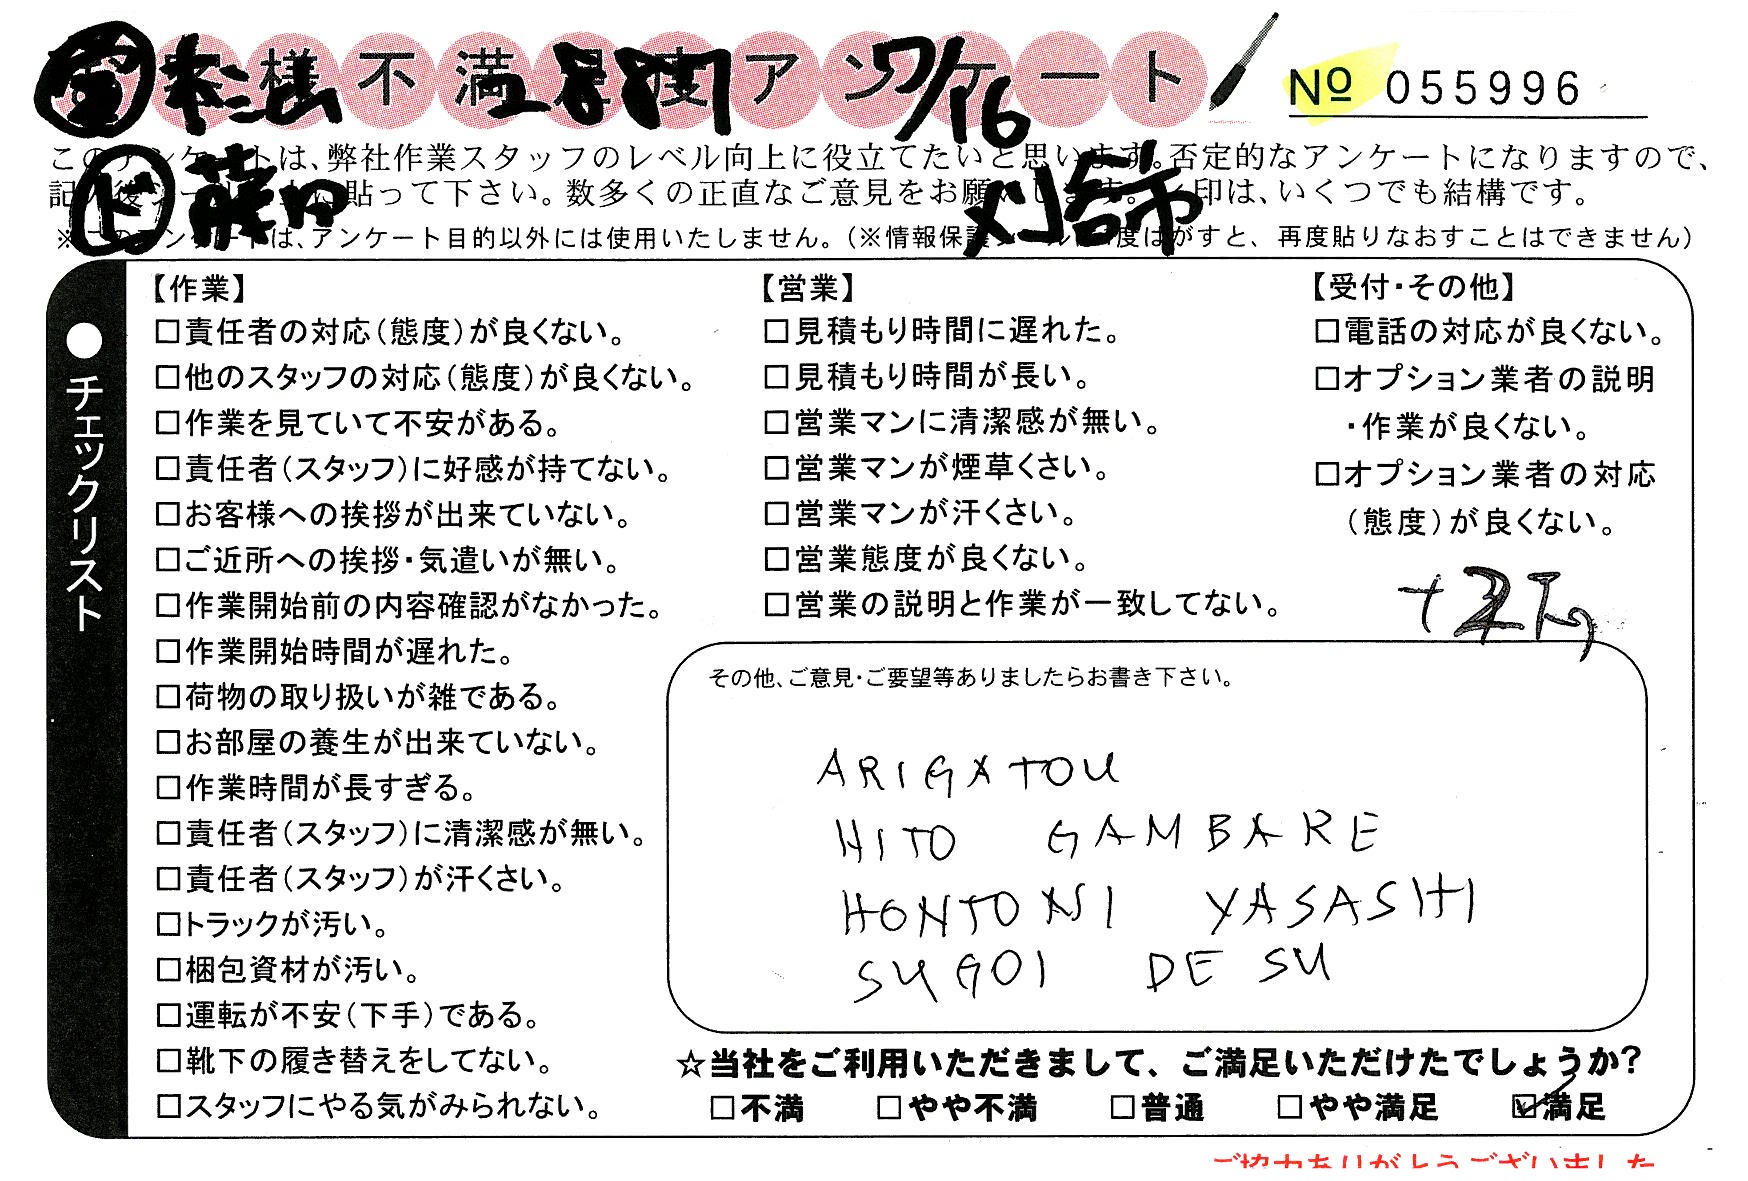 様不満足度アンケート
7/16
№ 055996
このアンケートは、弊社作業スタッフのレベル向上に役立てたいと思います。否定的なアンケートになりますので、
記入後シールを上に貼って下さい。数多くの正直なご意見をお願いします。印は、いくつでも結構です。
藤田
刈谷市
※このアンケートは、アンケート目的以外には使用いたしません。（※情報保護シールは1度はがすと、再度貼りなおすことはできません）
●チェックリスト
【作業】
□責任者の対応（態度）が良くない。
□他のスタッフの対応（態度）が良くない。
□作業を見ていて不安がある。
□責任者（スタッフ）に好感が持てない。
□お客様への挨拶が出来ていない。
□ご近所への挨拶・気遣いが無い。
□作業開始前の内容確認がなかった。
□作業開始時間が遅れた。
□荷物の取り扱いが雑である。
□お部屋の養生が出来ていない。
□作業時間が長すぎる。
□責任者（スタッフ）に清潔感が無い。
□責任者（スタッフ）が汗くさい。
□トラックが汚い。
□梱包資材が汚い。
□運転が不安（下手）である。
□靴下の履き替えをしてない。
□スタッフにやる気がみられない。
【営業】
□見積もり時間に遅れた。
□見積もり時間が長い。
□営業マンに清潔感が無い。
□営業マンが煙草くさい。
□営業マンが汗くさい。
□営業態度が良くない。
□営業の説明と作業が一致してない。
【受付・その他】
□電話の対応が良くない。
□オプション業者の説明
・作業が良くない。
□オプション業者の対応
（態度）が良くない。
その他、ご意見・ご要望等ありましたらお書き下さい。
ARIGATOU
HITO GAMBARE
HONTONI YASASHI
SUGOI DESU
☆当社をご利用いただきまして、ご満足いただけたでしょうか?
□不満 □やや不満 □普通 □やや満足 ☑満足
ご協力ありがとうございました